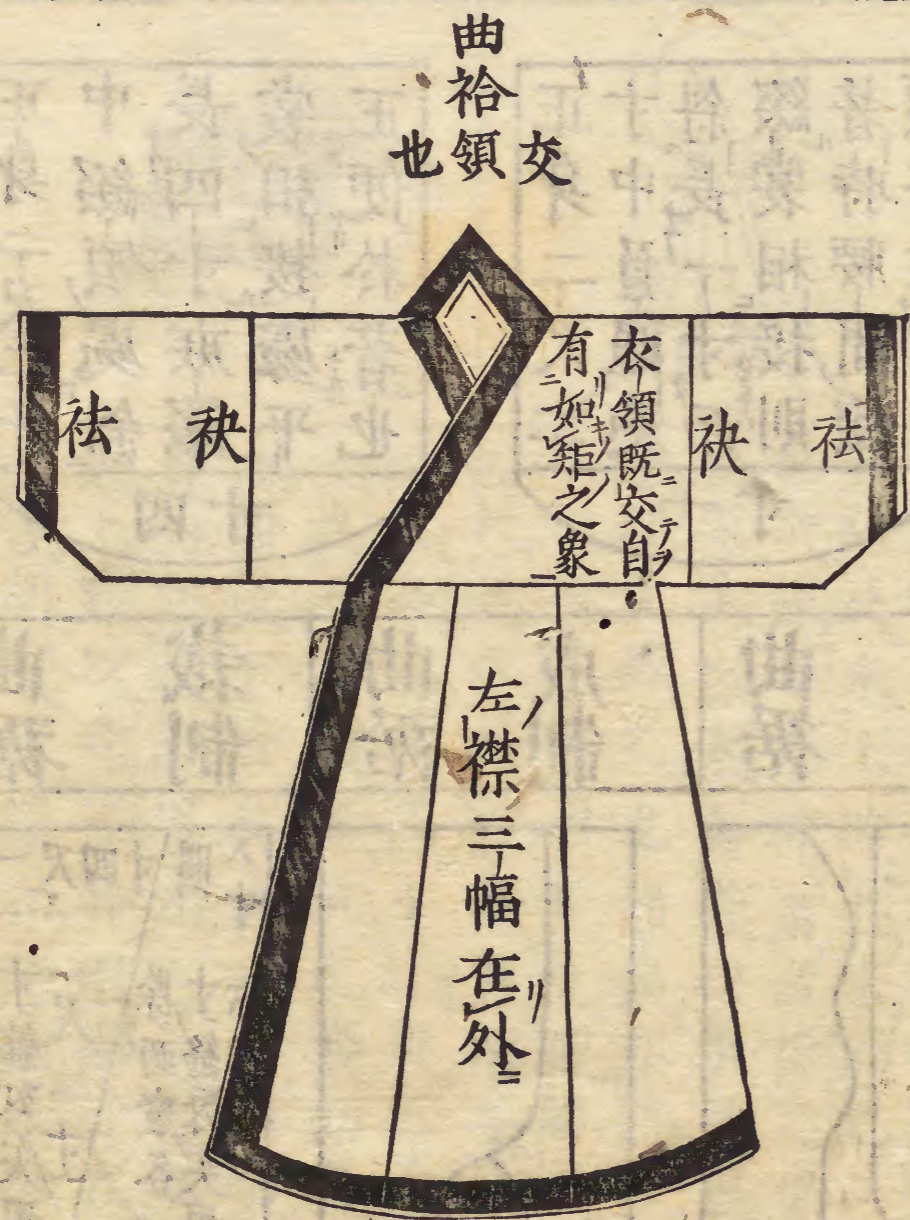 曲袷
交領也
衣領既交自
有如矩之象
袪
袂
袂
袪
左襟三幅在外